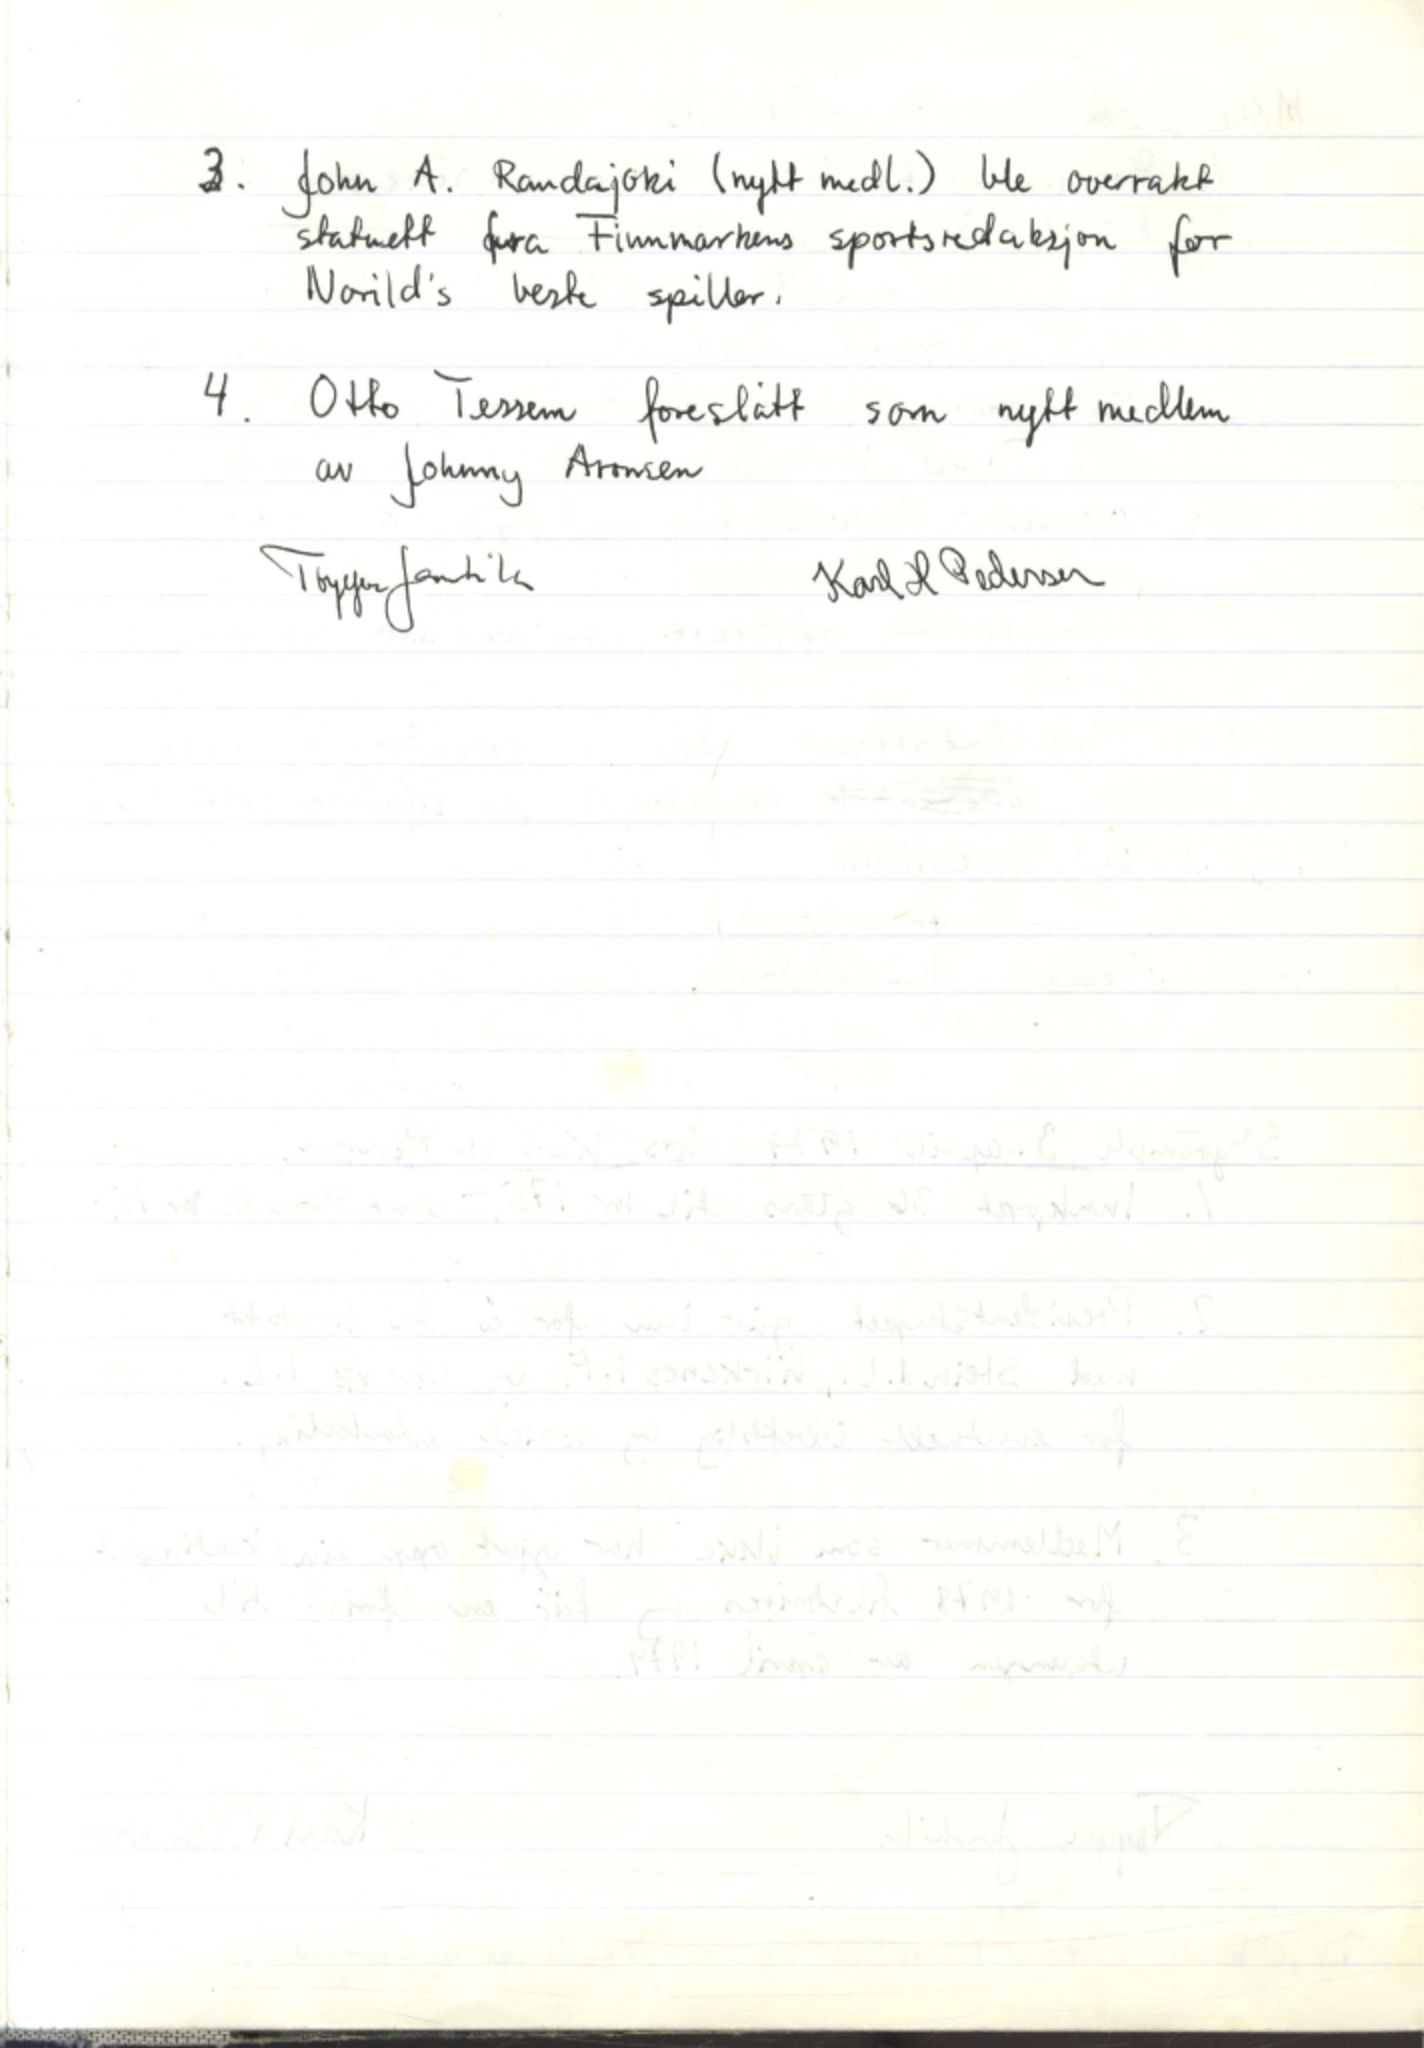 3. John A. Randajoki (nytt medl.) ble overrakt
statuett fra Finnmarkens sportsredaksjon for
Norild's beste spiller.
4. Otto Tessem foreslått som nytt medlem
av Johnny Aronsen
Karl H Pedersen